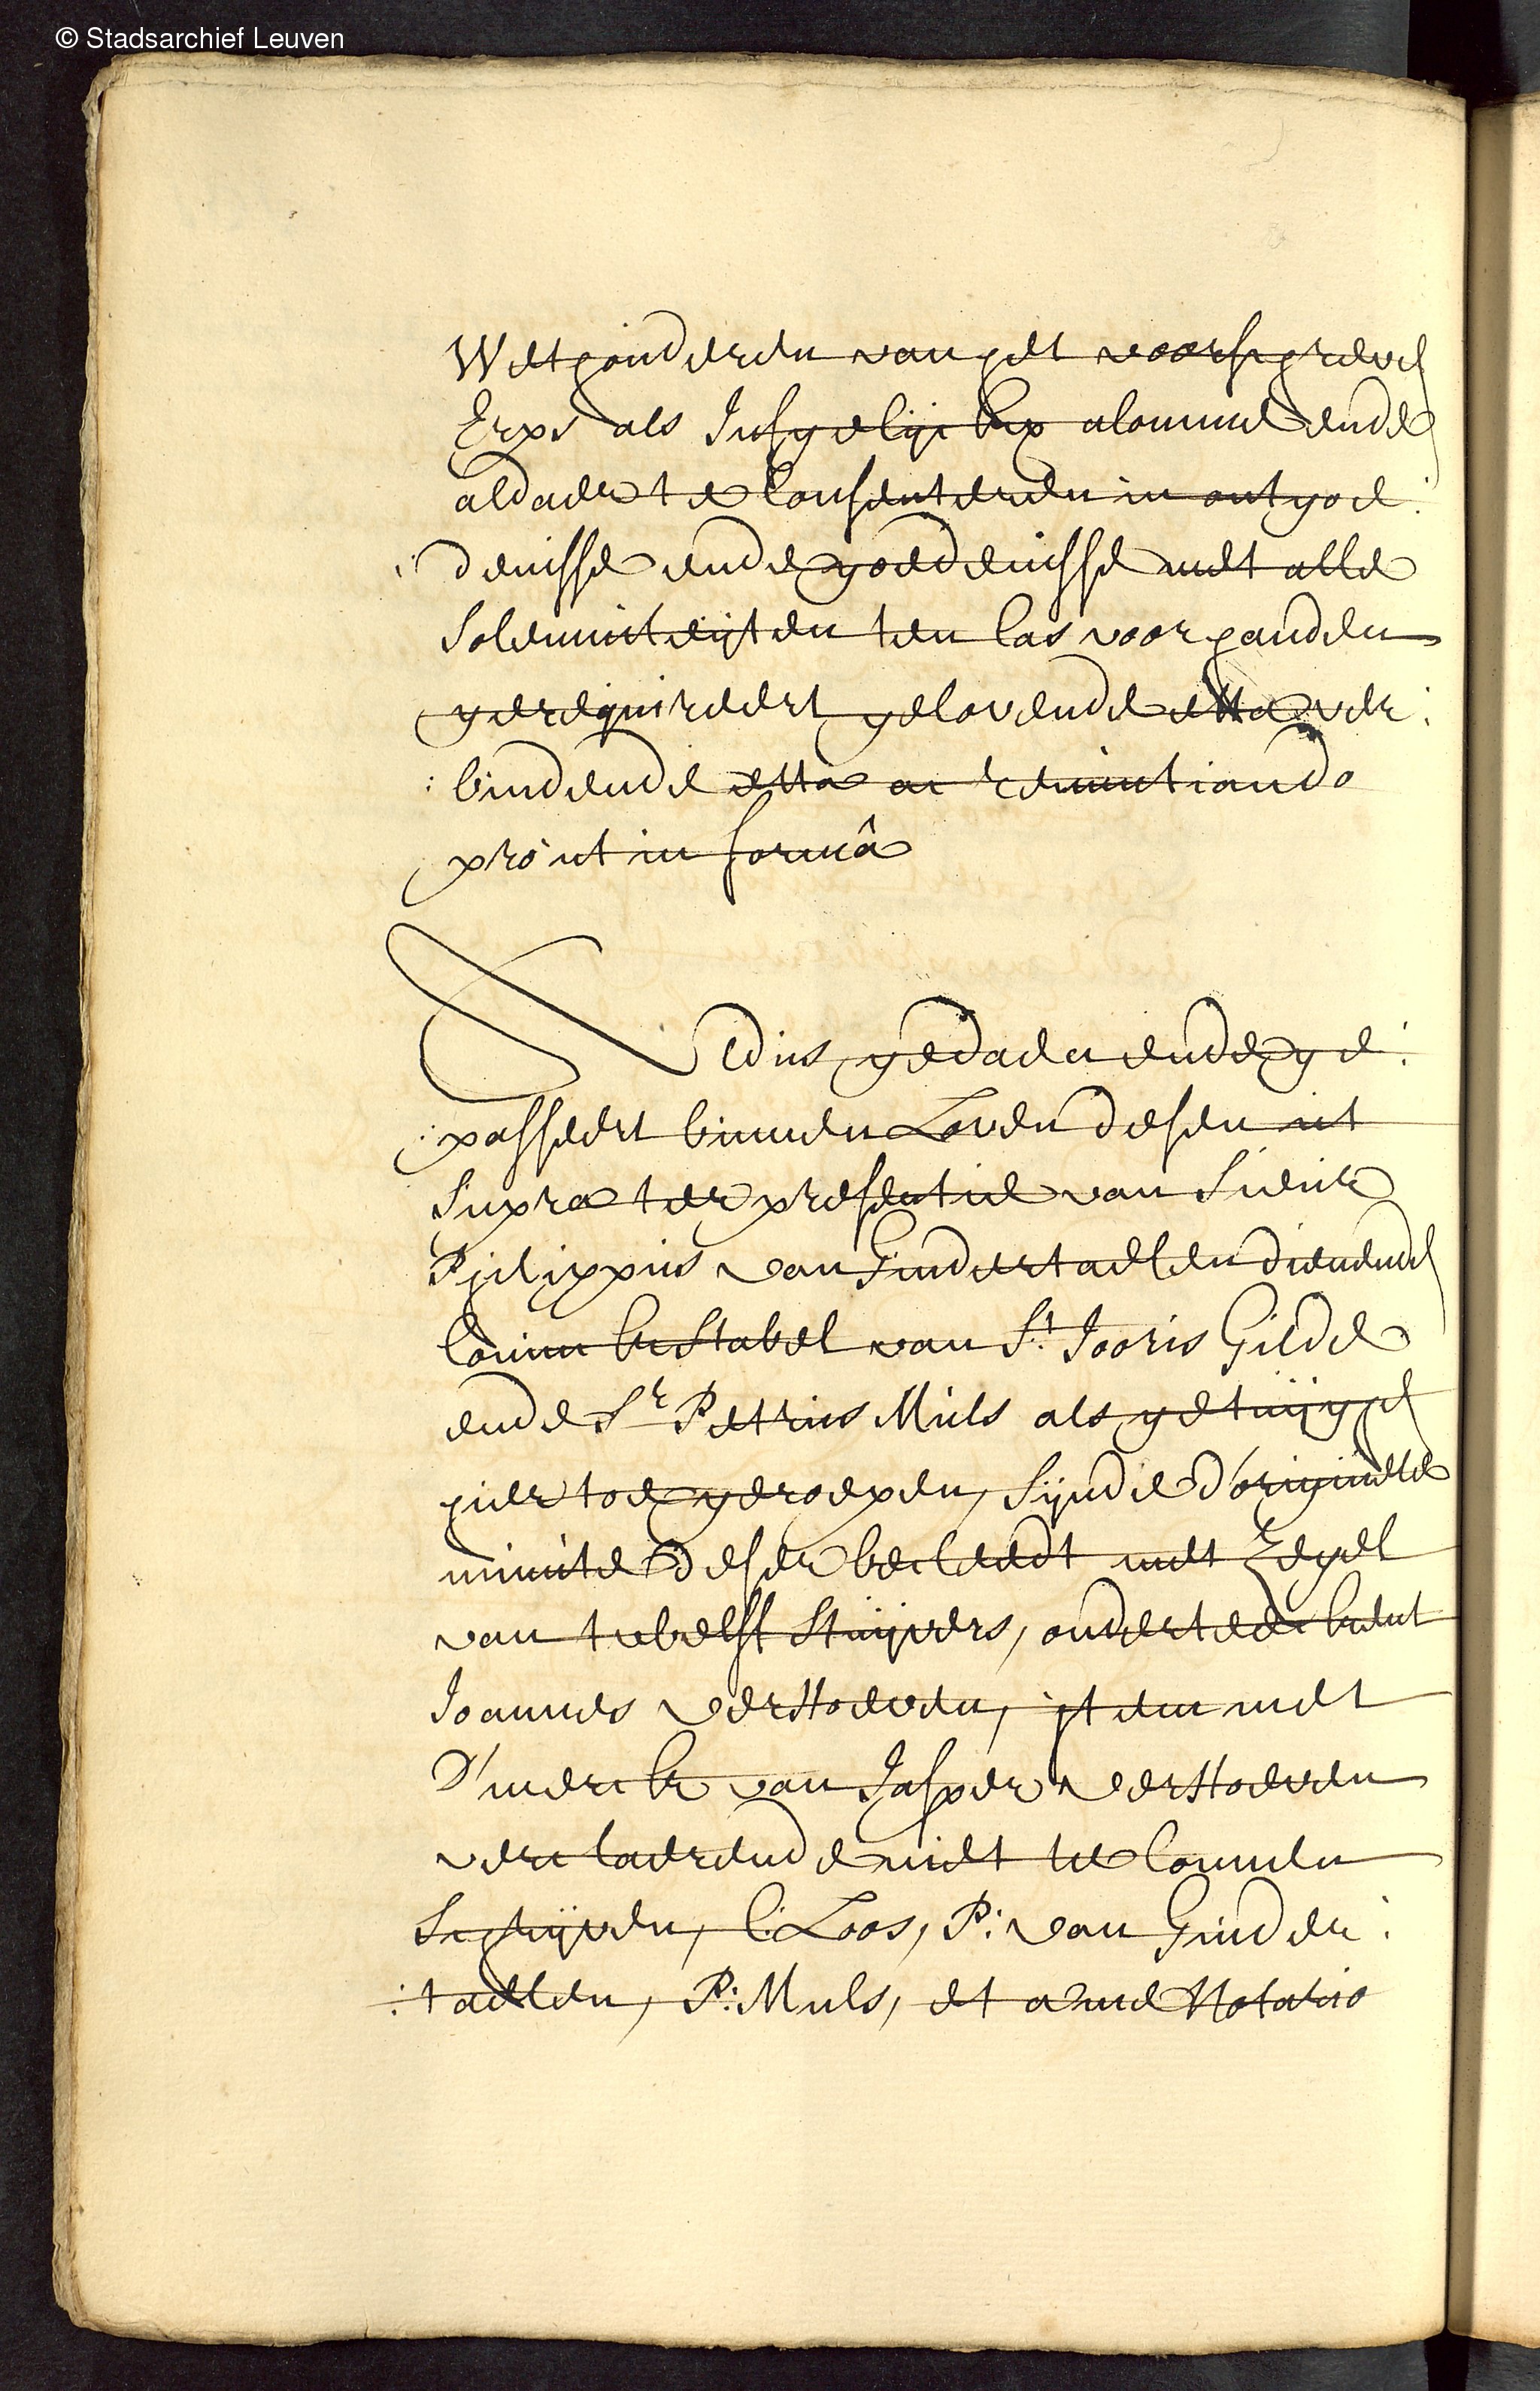 © Stadsarchief Leuven
Wethouderen van het voorschreve
Erps als Insgelijckx alomme ende
aldaer te Consenteren in ontgoe:
:denisse ende goedenisse met alle
Solemniteijten ten Cas voorhanden
gerequireert gelovende etta ver:
:bindende etta ac renuntiando
proút in formâ
Aldus gedaen ende ge:
:passeert binnen Loven desen ut
Supra ter presentie van Sieúr
Philippus van Grindertaelen dienende
Coninckstabel van St. Jooris Gilde
ende Sr Petrus Múls als getuijghe
hier toe geroepen, Sijnde d'originele
minúte deser becleedt met Zegel
van twelff Stuijvers, onderteeckent
Joannes verHoeven, item met
d'merck van Jasper verHoeven
verclaerende niet te Connen
Schrijven, C: Loos, P: van Ginder:
:taelen, P: Muls, et a me Notario